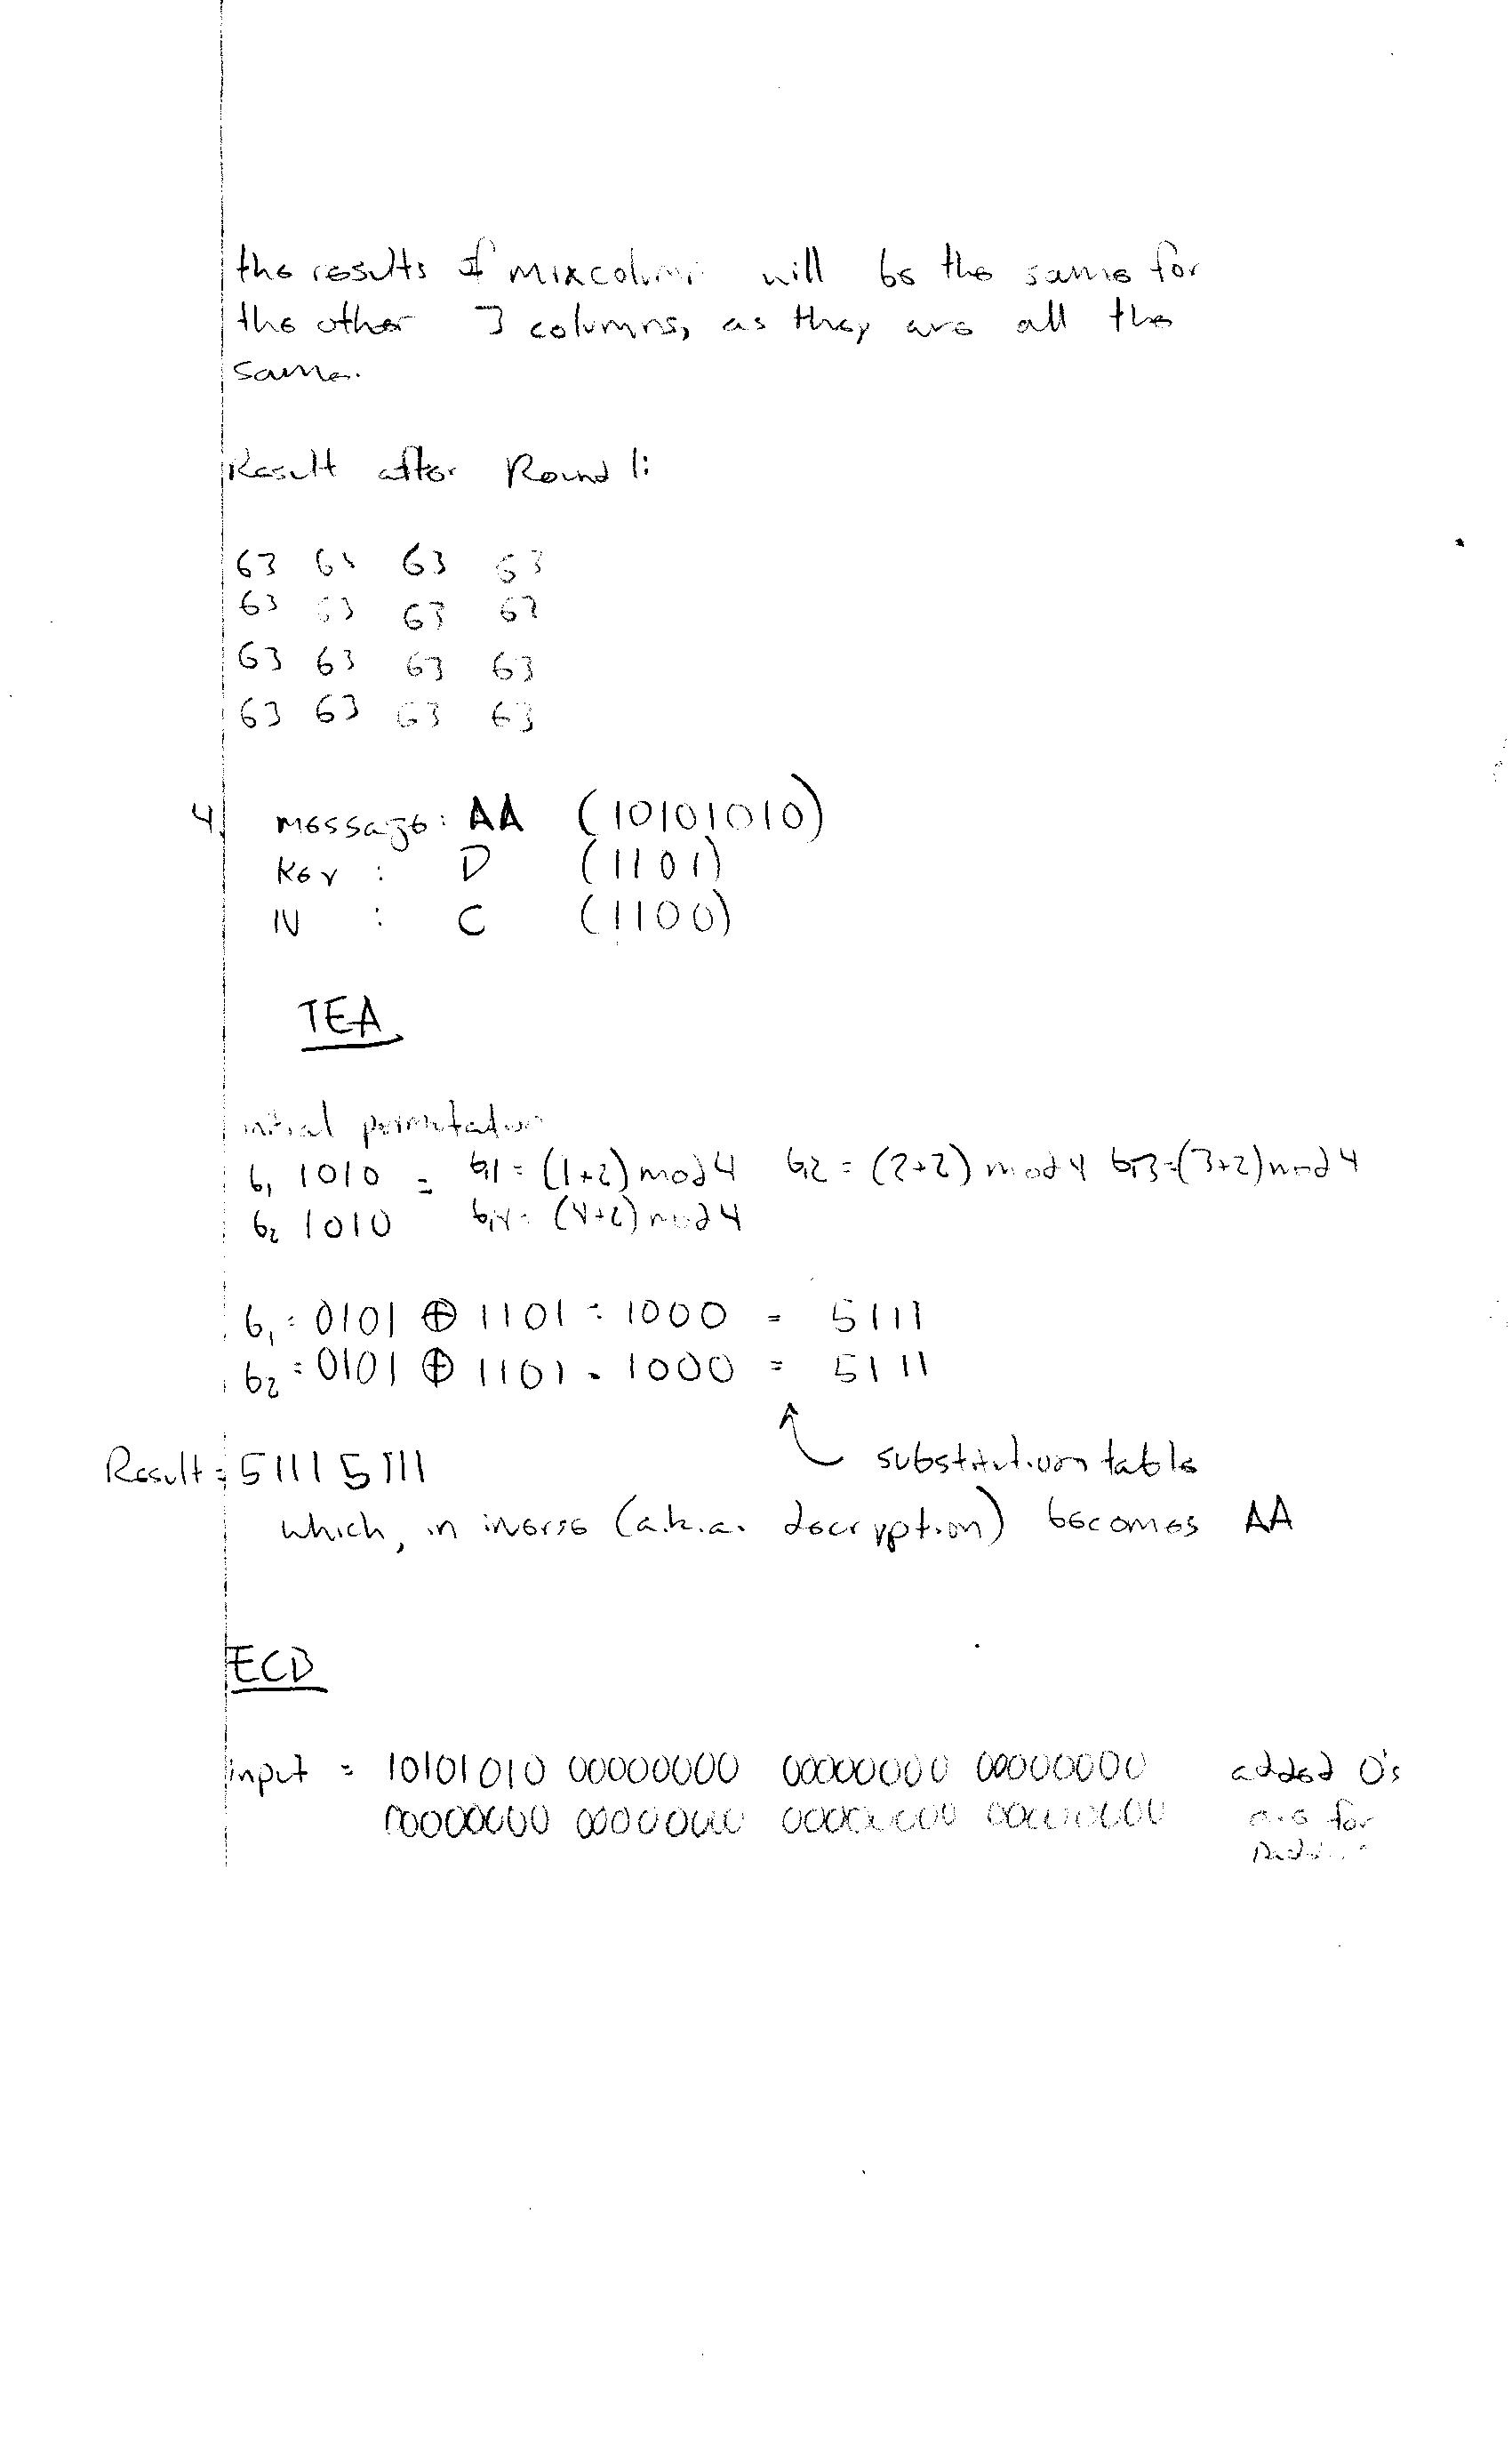 the results of mixcolumn will be the same for
the other 3 columns, as they are all the
same.
Result after Round 1:
63 63 63 63
63 63 63 63
63 63 63 63
63 63 63 63
4. message: AA (10101010)
Key : D (1101)
IV : C (1100)
TEA
initial permutation
b₁ 1010 = b₁1 = (1+2) mod 4 b₁2 = (2+2) mod 4 b₁3 = (3+2) mod 4
b₂ 1010 b₁4 = (4+2) mod 4
b₁ = 0101 ⊕ 1101 = 1000 = 5111
b₂ = 0101 ⊕ 1101 = 1000 = 5111
substitution table
Result = 5111 5111
which, in inverse (a.k.a. decryption) becomes AA
ECB
input = 10101010 00000000 00000000 00000000 added 0's
00000000 00000000 00000000 00000000 are for